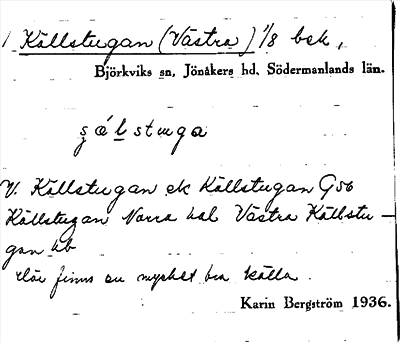 / Källstugan (Västra) 1/8 bsk,
Björkviks sn, Jönåkers hd, Södermanlands län.
s̨á̄lstuga
V. Källstugan ek Källstugan G50
Källstugan Norra hal Västra Källstu-
gan hb
där finns en mycket bra källa.
Karin Bergström 1936.